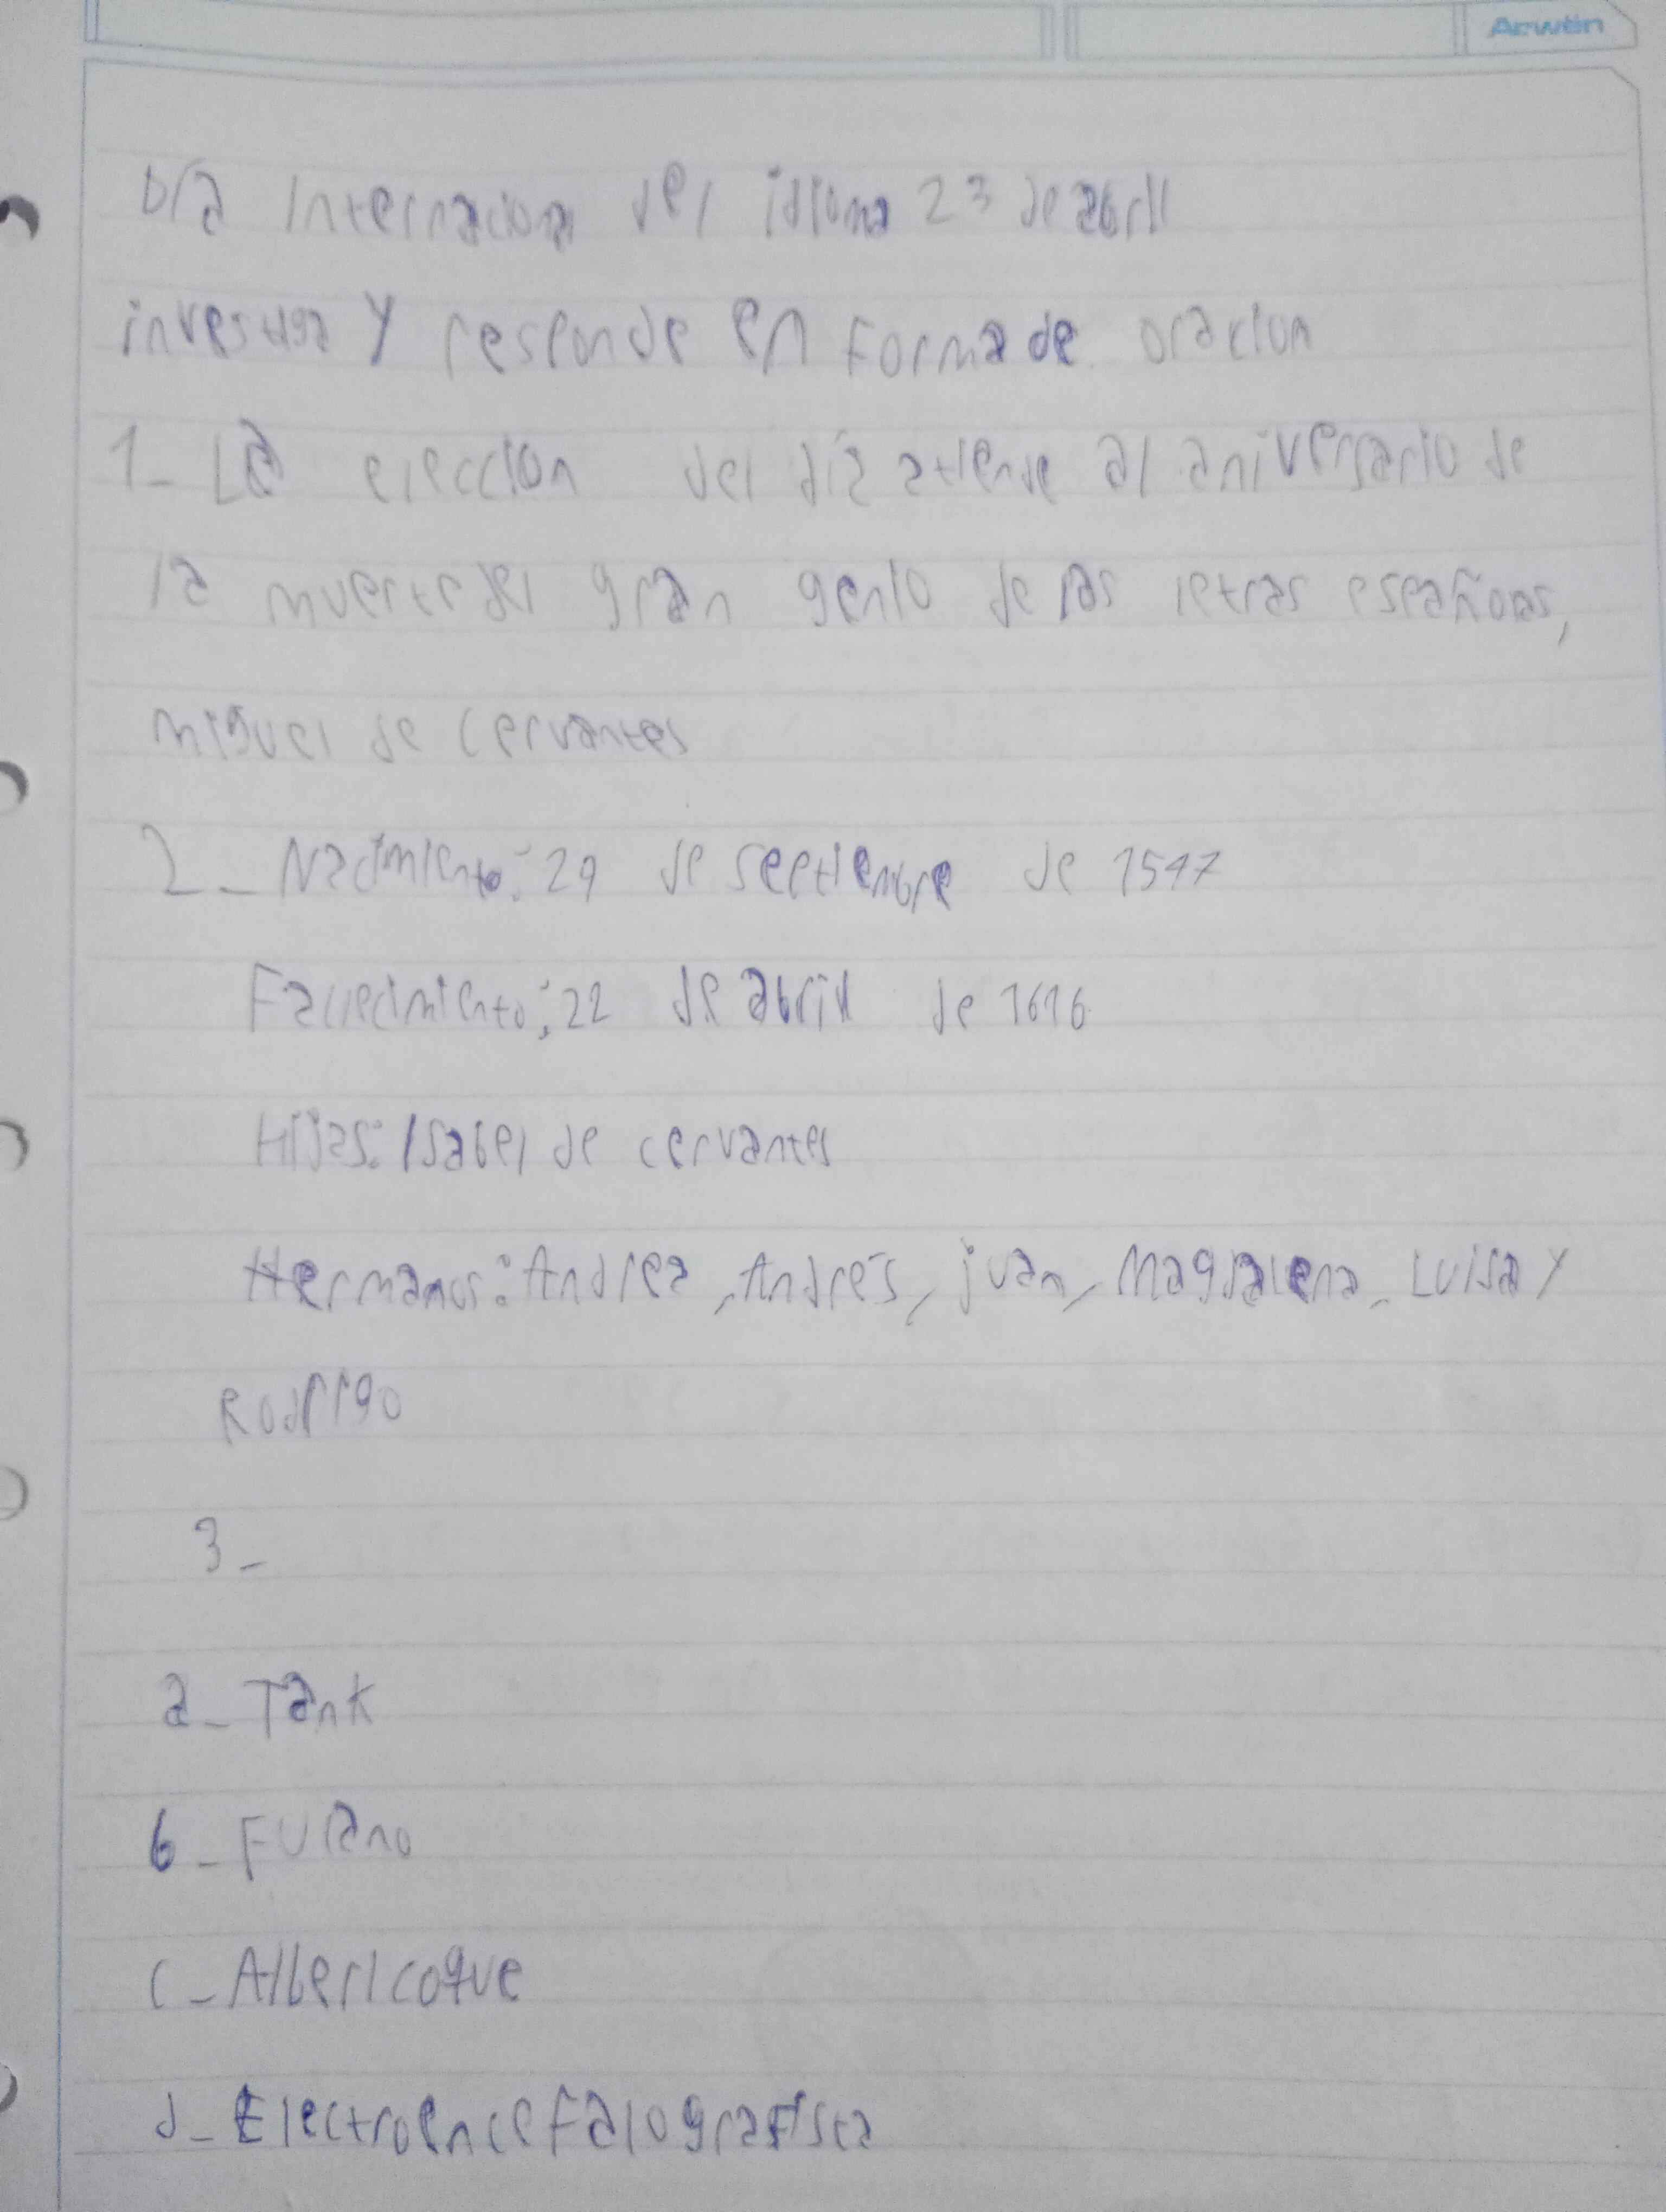 Arwen
Día Internacional del idioma 23 de abril
investiga y responde en Forma de oracion
1- La eleccion del día atiende al aniversario de
la muerte del gran genio de las letras españolas,
miguel de cervantes
2- Nacimiento: 29 de septiembre de 1547
Fallecimiento: 22 de abril de 1616
Hijas: Isabel de cervantes
Hermanos: Andrea, Andrés, juan, Magdalena, Luisa y
Rodrigo
3-
a- Tank
b- Fulano
c- Albericoque
d- Electroencefalografista